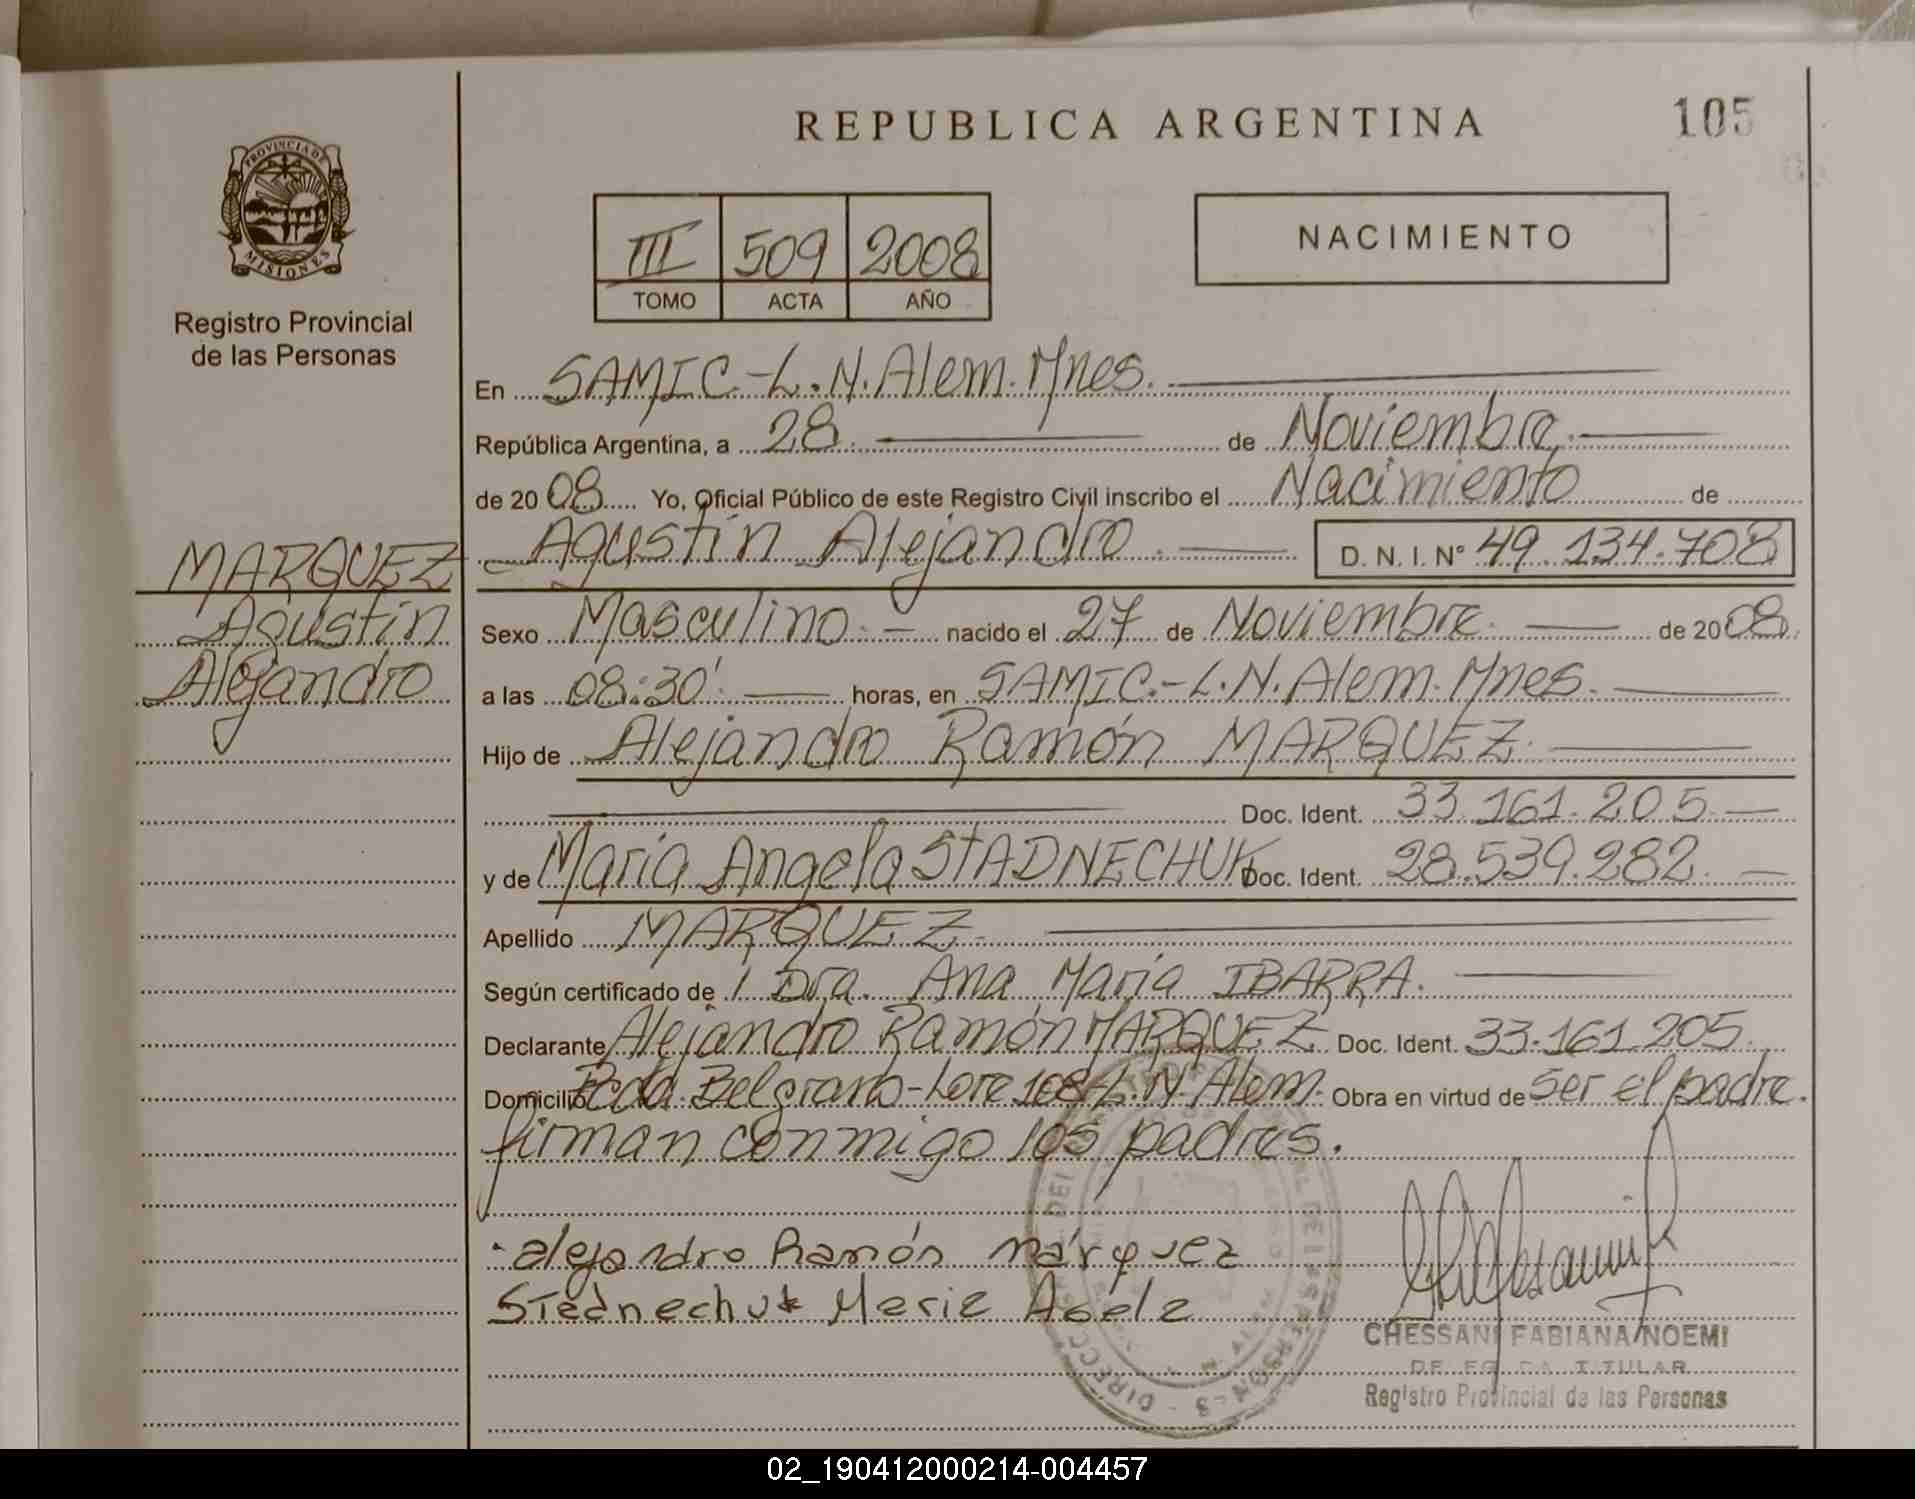 REPUBLICA ARGENTINA
105
PROVINCIA DE
MISIONES
Registro Provincial
de las Personas
III 509 2008
TOMO ACTA AÑO
NACIMIENTO
En SAMIC.-L.N.Alem.Mnes.
República Argentina, a 28. de Noviembre.
de 2008 Yo, Oficial Público de este Registro Civil inscribo el Nacimiento de
Agustín Alejandro. D.N.I. N° 49.134.708
MARQUEZ
Agustín
Alejandro
Sexo Masculino. nacido el 27 de Noviembre. de 2008.
a las 08:30'. horas, en SAMIC.-L.N.Alem.Mnes.
Hijo de Alejandro Ramón MARQUEZ.
Doc. Ident. 33.161.205
y de María Angela STADNECHUK Doc. Ident. 28.539.282.
Apellido MARQUEZ.
Según certificado de Dra. Ana María IBARRA.
Declarante Alejandro Ramón MARQUEZ Doc. Ident. 33.161.205
Domicilio Bda. Belgrano-Lote 108-L.N.Alem. Obra en virtud de ser el padre.
firman conmigo los padres.
alejandro Ramón márquez
Stadnechuk Maria
CHESSANI FABIANA NOEMI
TITULAR
Registro Provincial de las Personas
02_190412000214-004457